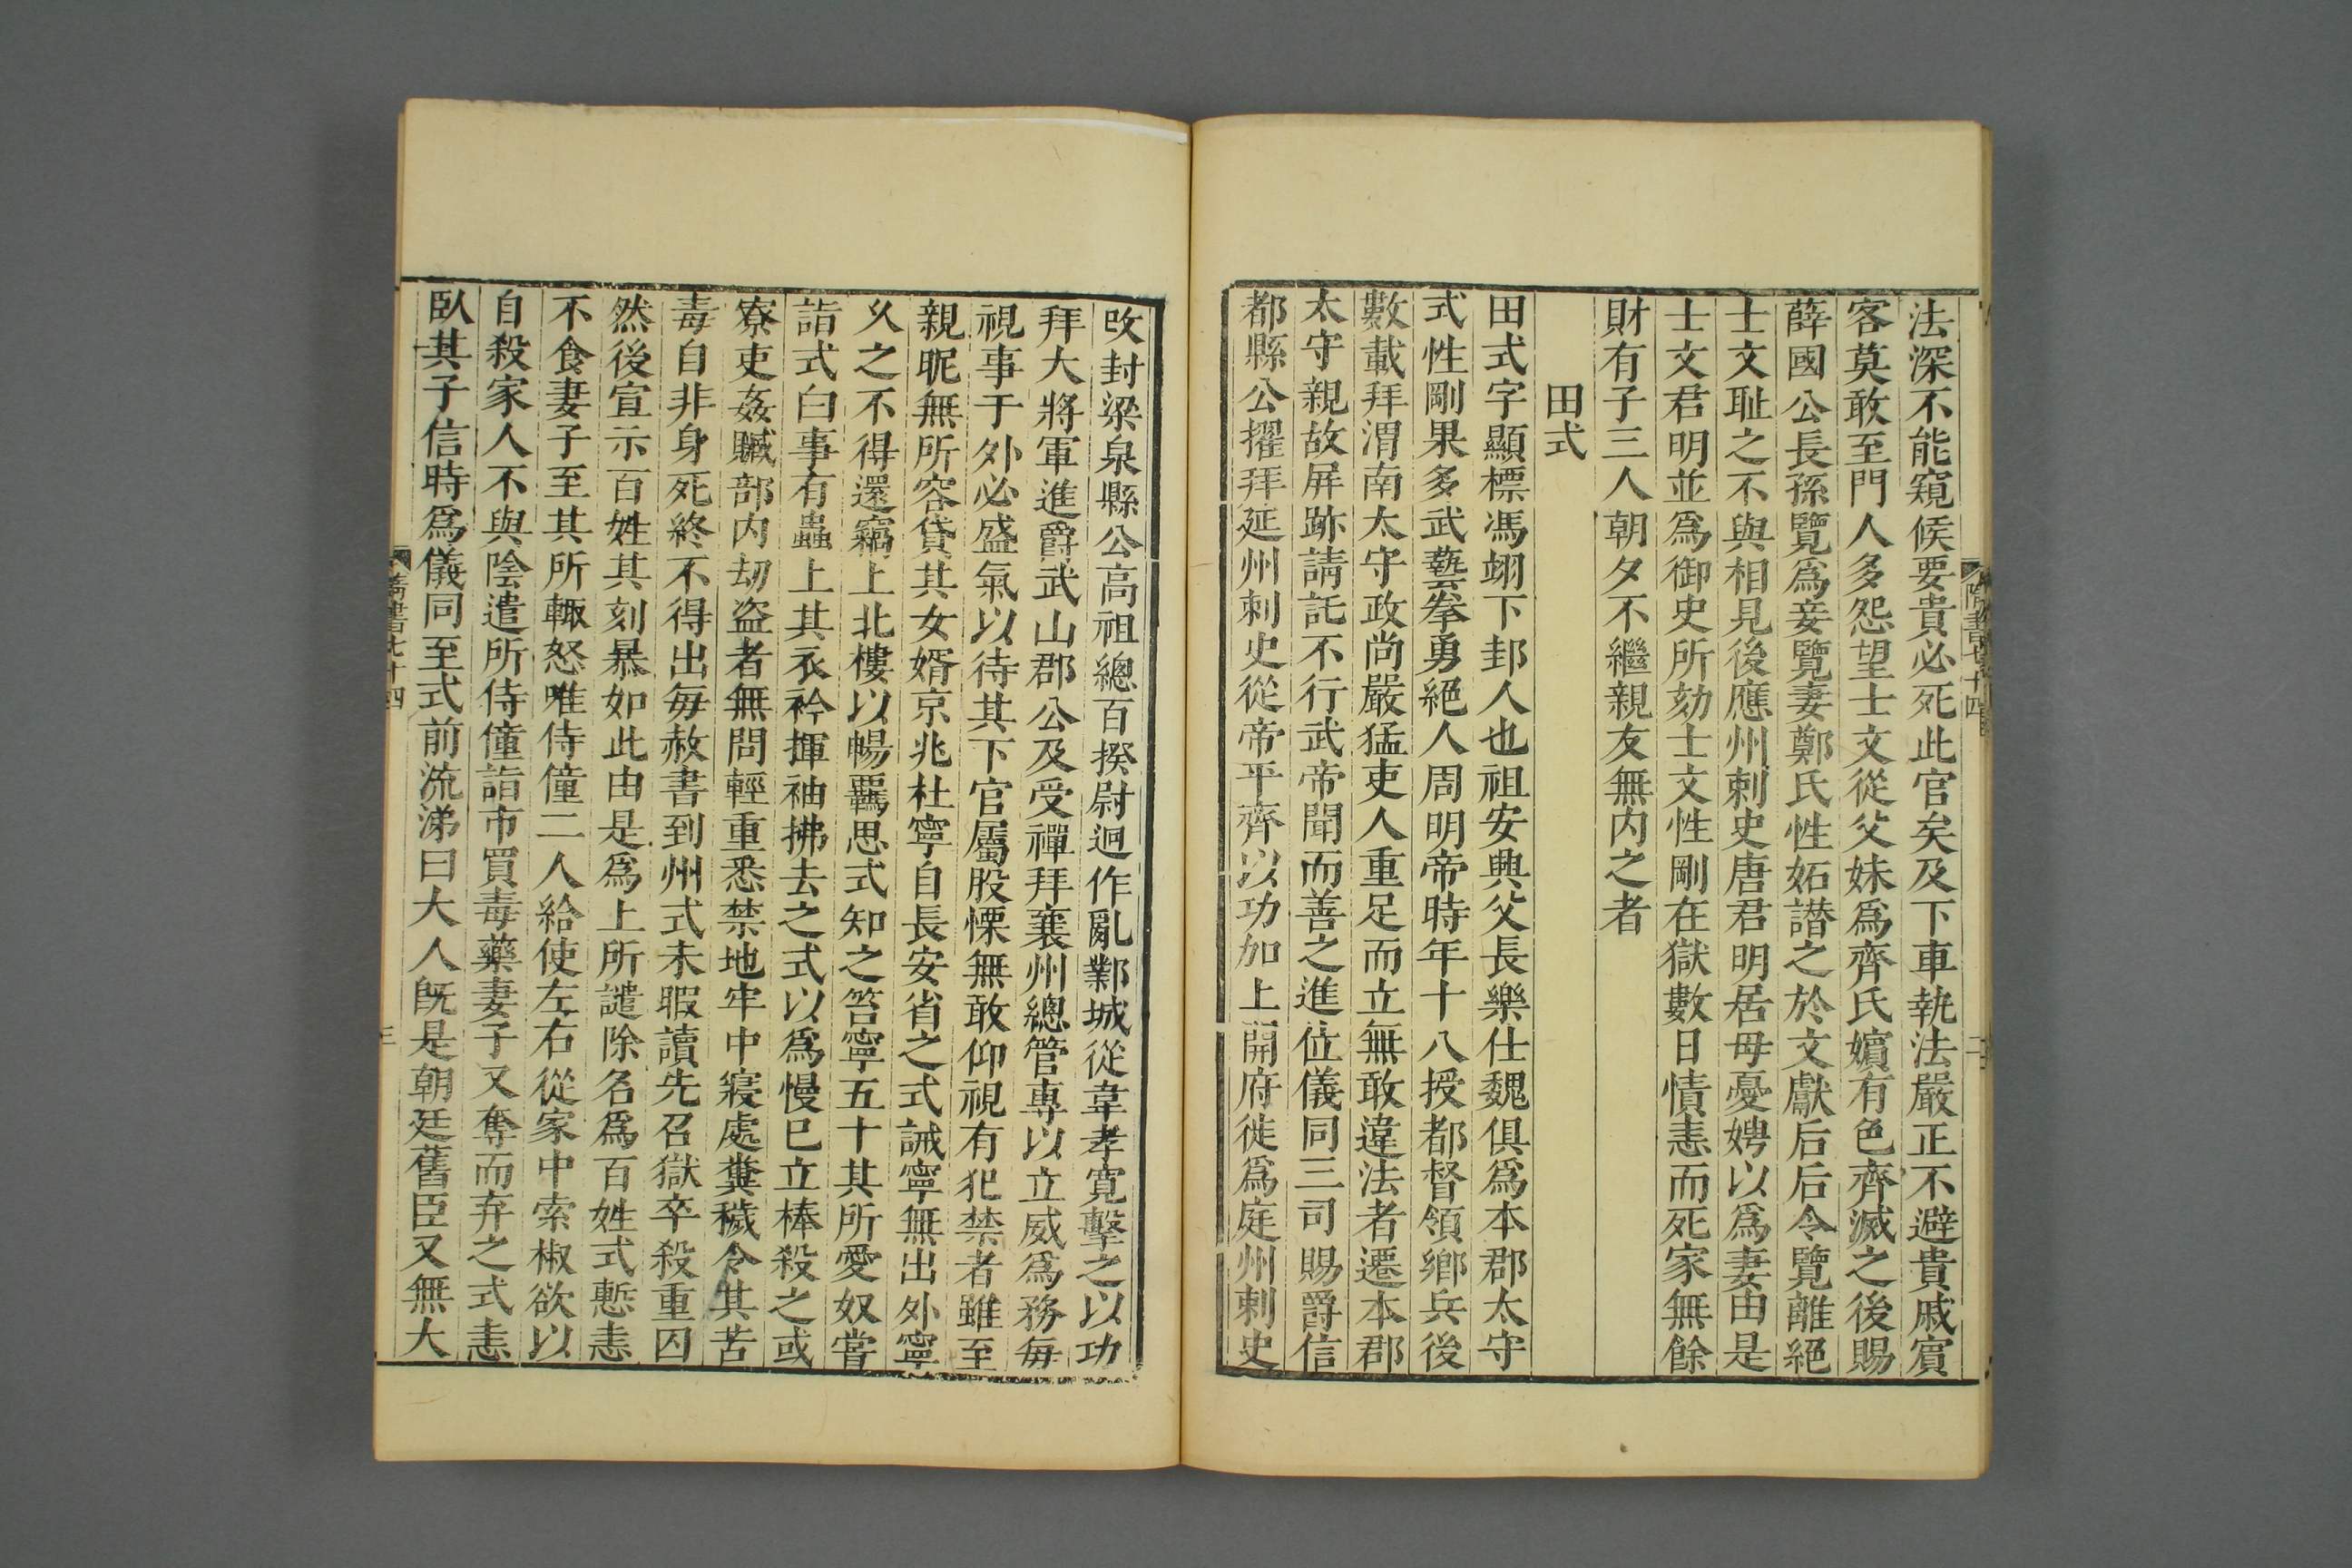 法深不能窺候要貴必死此官矣及下車執法嚴正不避貴戚賔
客莫敢至門人多怨望士文從父妹爲齊氏嬪有色齊滅之後賜
薛國公長孫覽爲妾覽妻鄭氏性妬譖之於文獻后后令覽離絕
士文耻之不與相見後應州刺史唐君明居母憂娉以爲妻由是
士文君明並爲御史所劾士文性剛在獄數日憤恚而死家無餘
財有子三人朝夕不繼親友無内之者
田式
田式字顯標馮翊下邽人也祖安興父長樂仕魏俱爲本郡太守
式性剛果多武藝拳勇絕人周明帝時年十八授都督領鄉兵後
數載拜渭南太守政尚嚴猛吏人重足而立無敢違法者遷本郡
太守親故屏跡請託不行武帝聞而善之進位儀同三司賜爵信
都縣公擢拜延州刺史從帝平齊以功加上開府徙爲庭州刺史
隋書七十四
二
改封梁泉縣公高祖總百揆尉迥作亂鄴城從韋孝寛擊之以功
拜大將軍進爵武山郡公及受禪拜襄州總管專以立威爲務每
視事于外必盛氣以待其下官屬股慄無敢仰視有犯禁者雖至
親昵無所容貸其女婿京兆杜寧自長安省之式誡寧無出外寧
久之不得還竊上北樓以暢羈思式知之笞寧五十其所愛奴嘗
詣式白事有蟲上其衣衿揮袖拂去之式以爲慢已立棒殺之或
寮吏姦贓部内刼盗者無問輕重悉禁地牢中寢處糞穢令其苦
毒自非身死終不得出每赦書到州式未暇讀先召獄卒殺重囚
然後宣示百姓其刻暴如此由是爲上所譴除名爲百姓式慙恚
不食妻子至其所輙怒唯侍僮二人給使左右從家中索椒欲以
自殺家人不與陰遣所侍僮詣市買毒藥妻子又奪而弃之式恚
臥其子信時爲儀同至式前流涕曰大人旣是朝廷舊臣又無大
隋書七十四
三